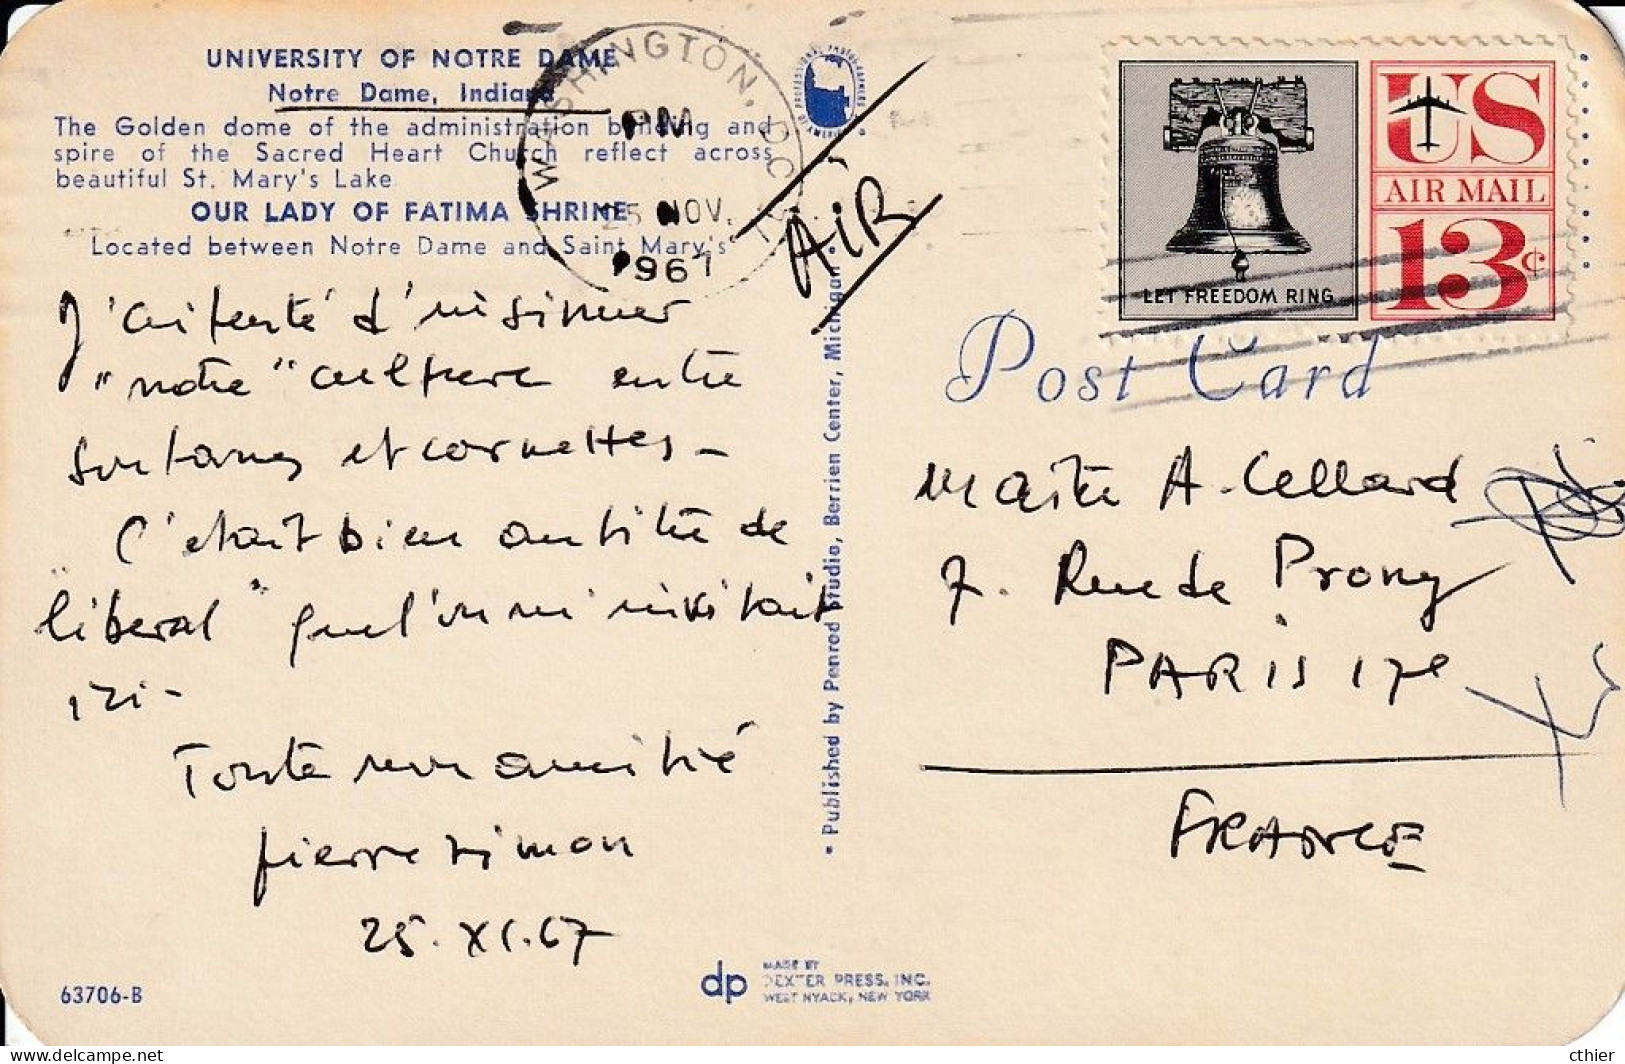 UNIVERSITY OF NOTRE DAME
Notre Dame, Indiana
The Golden dome of the administration building and
spire of the Sacred Heart Church reflect across
beautiful St. Mary's Lake
OUR LADY OF FATIMA SHRINE
Located between Notre Dame and Saint Mary's
WASHINGTON, D.C.
PM
25 NOV.
1967
AIR
PROFESSIONAL PHOTOGRAPHERS OF AMERICA
US
AIR MAIL
13¢
LET FREEDOM RING
Post Card
J'ai tenté d'insinuer
"notre" culture entre
soutanes et cornettes -
C'était bien au titre de
"libéral" que l'on m'invitait
ici -
Toute mon amitié
pierre simon
25. XI. 67
• Published by Penrod Studio, Berrien Center, Michigan •
Maître A. Cellard
7. Rue de Prony
PARIS 17e
FRANCE
63706-B
dp
MADE BY
DEXTER PRESS, INC.
WEST NYACK, NEW YORK
cthier